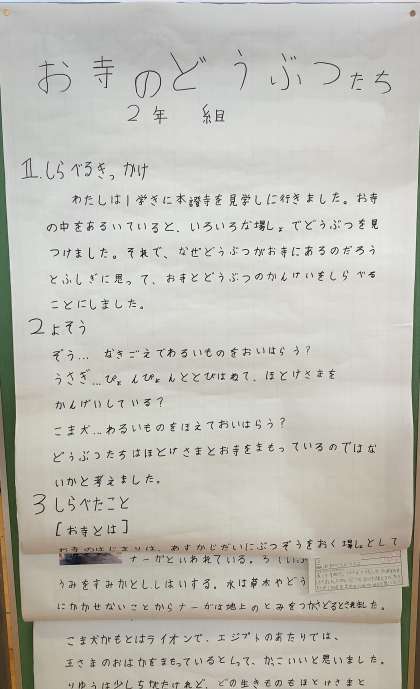 お寺のどうぶつたち
2年 組
1.しらべるきっかけ
わたしは1学きに本證寺を見学しに行きました。お寺
の中をあるいていると、いろいろな場しょでどうぶつを見
つけました。それで、なぜどうぶつがお寺にあるのだろう
とふしぎに思って、お寺とどうぶつのかんけいをしらべる
ことにしました。
2よそう
ぞう… なきごえでわるいものをおいはらう?
うさぎ…ぴょんぴょんととびはねて、ほとけさまを
かんげいしている?
こま犬…わるいものをほえておいはらう?
どうぶつたちはほとけさまとお寺をまもっているのではな
いかと考えました。
3しらべたこと
[お寺とは]
お寺のはじまりは、あすかじだいにぶつぞうをおく場しょとして
ナーガといわれている。
うみをすみかとししはいする。水は草木やどう
にかかせないことからナーガは地上のとみをつかさどるとされました。
こま犬がもとはライオンで、エジプトのあたりでは、
王さまのおはかをまもっているとしって、かこいいと思いました。
りゆうは少しちがたけれど、どの生きものもほとけさまと